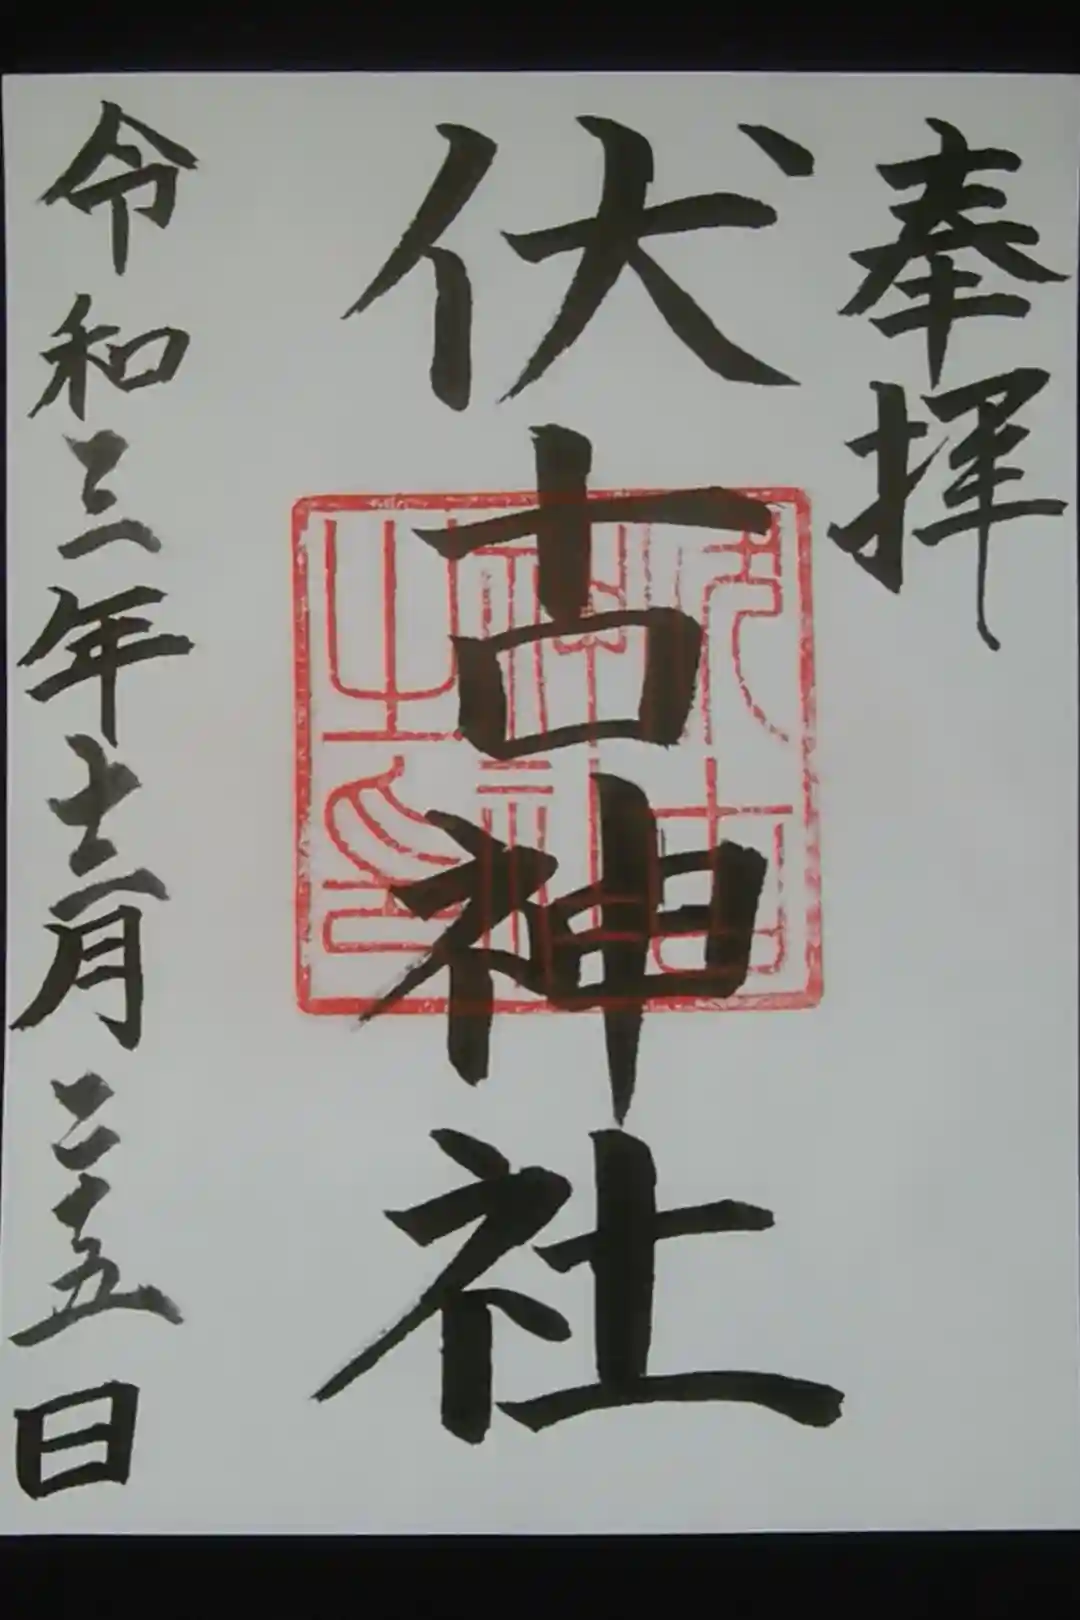 奉拝
伏古神社
伏古神社之印
令和三年十二月二十五日